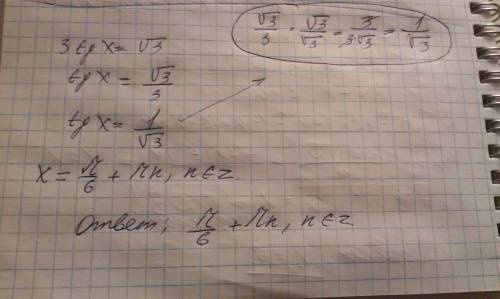 3 tg x = √3
tg x = √3/3
tg x = 1/√3
√3/3 · √3/√3 = 3/3√3 = 1/√3
x = π/6 + πn, n∈z.
Ответ: π/6 + πn, n∈z